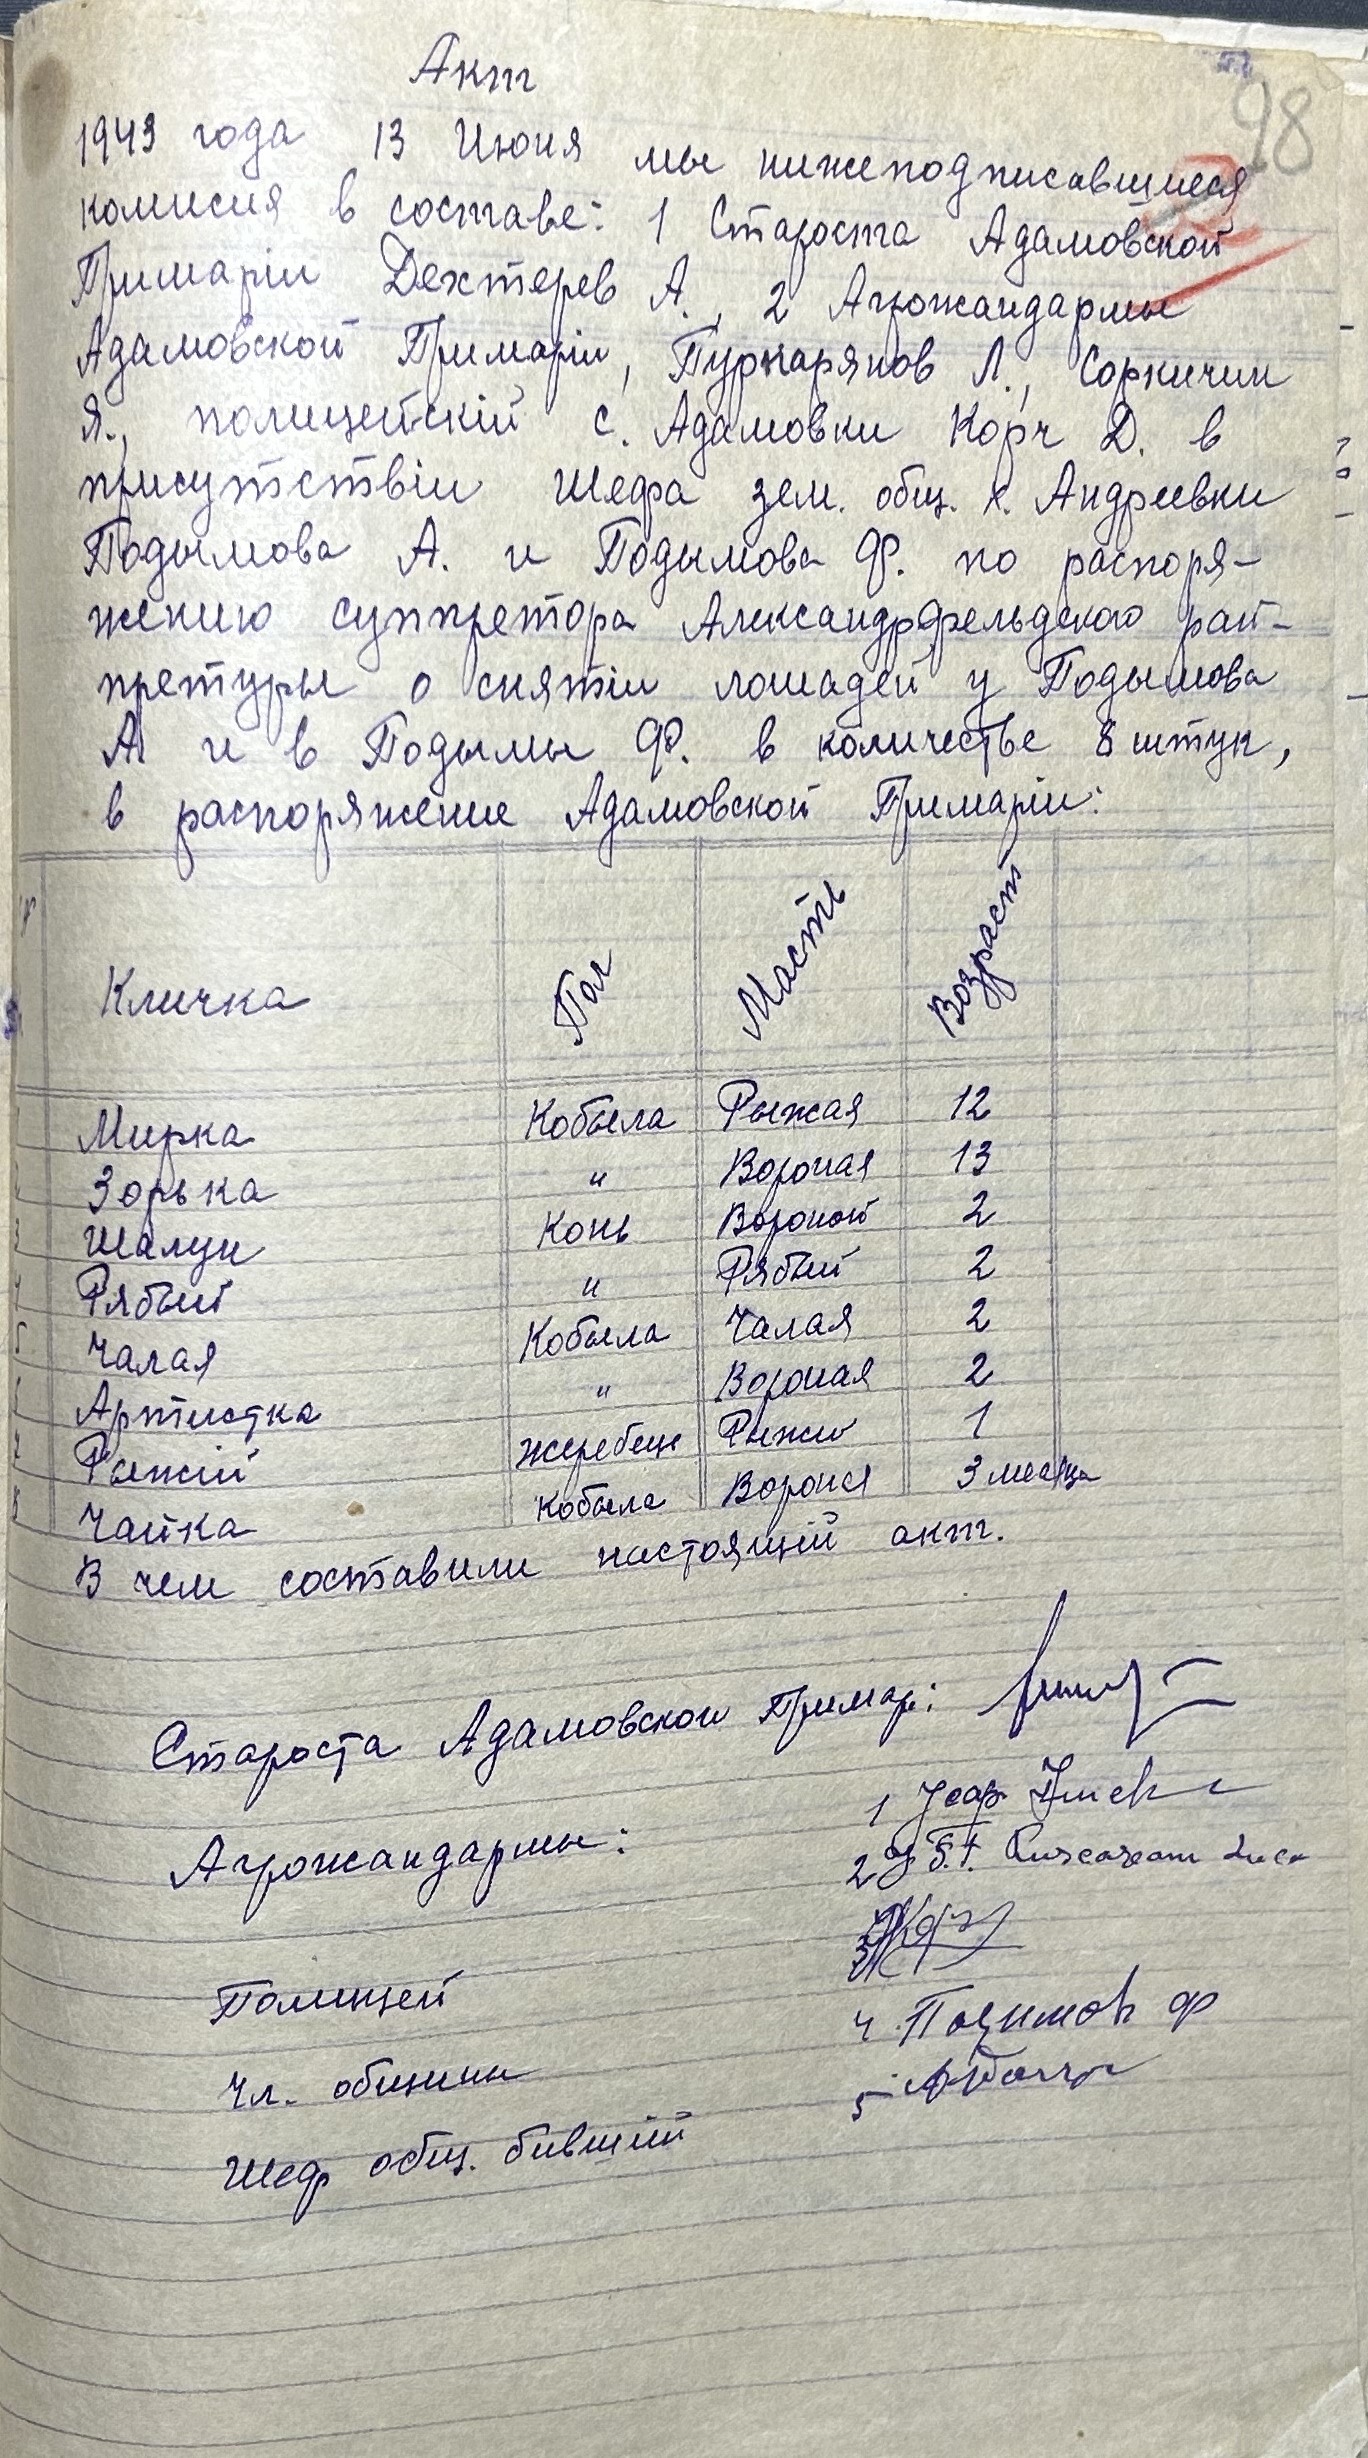 98
Акт
1943 года 13 Июня мы нижеподписавшиеся
комисия в составе: 1 Староста Адамовской
Примаріи Дехтерев А., 2 Агрожандармы
Адамовской Примаріи, Пуркарянов Л., Соркичин
Я., полицейскій с. Адамовки Корч Д. в
присутствіи Шефа зем. общ. х. Андреевки
Подымова А. и Подымова Ф. по распоря-
жению суппретора Александрфельдского рай-
претуры о снятіи лошадей у Подымова
А и в Подымы Ф. в количестве 8 штук,
в распоряжение Адамовской Примаріи:
Кличка Пол Масть Возраст
1 Мирка Кобыла Рыжая 12
2 Зорька " Вороная 13
3 Шалун Конь Вороной 2
4 Рябый " Рябый 2
5 Чалая Кобыла Чалая 2
6 Артистка " Вороная 2
7 Рыжій Жеребец Рыжий 1
8 Чайка Кобыла Вороная 3 месяца
В чем составили настоящій акт.
Староста Адамовской Примар:
Агрожандармы: 1
2
Полицей 3
Чл. общины 4 Подимов Ф
Шеф общ. бивший 5